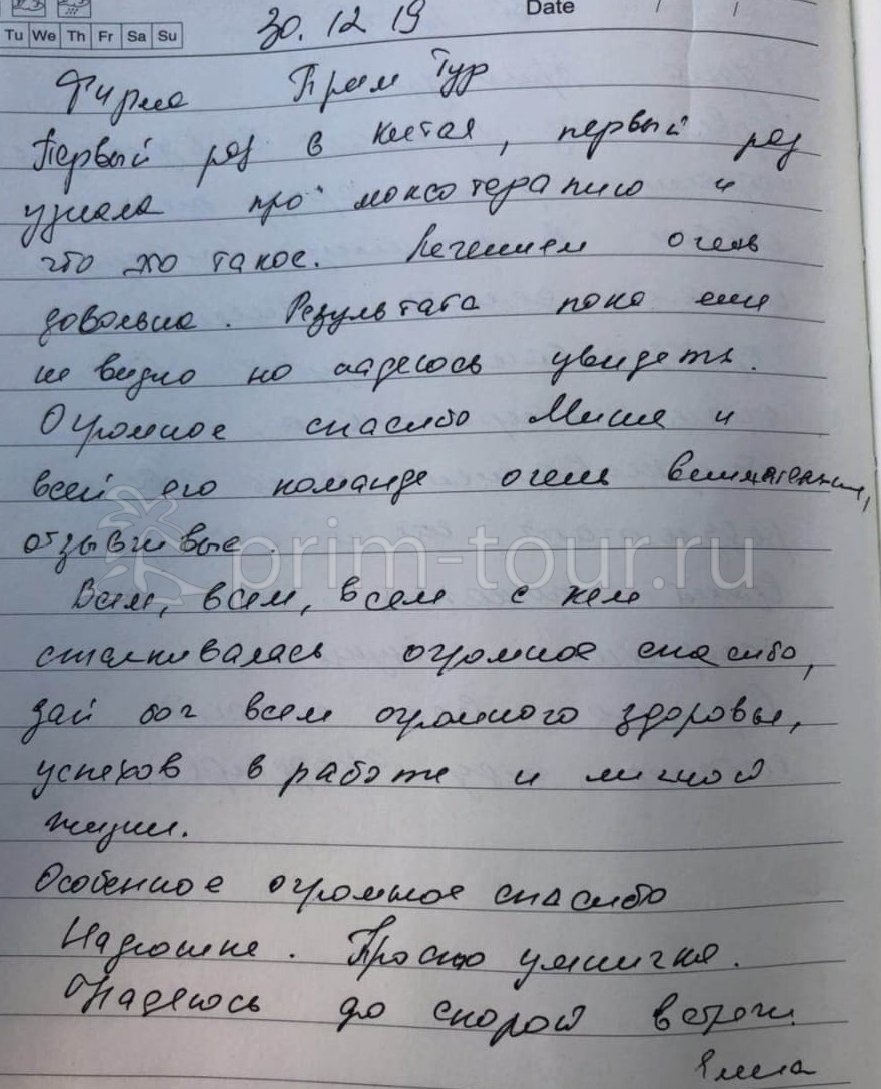 Date / /
Tu We Th Fr Sa Su
30.12.19
Фирма Прим Тур
Первый раз в Китае, первый раз
узнала про моксотерапию и
что это такое. Лечением очень
довольна. Результата пока еще
не видно но надеюсь увидеть.
Огромное спасибо Мише и
всей его команде очень внимательные,
отзывчивые.
prim-tour.ru
Всем, всем, всем с кем
сталкивалась огромное спасибо,
дай бог всем огромного здоровья,
успехов в работе и личной
жизни.
Особенное огромное спасибо
Надюшке. Просто умничка.
Надеюсь до скорой встречи.